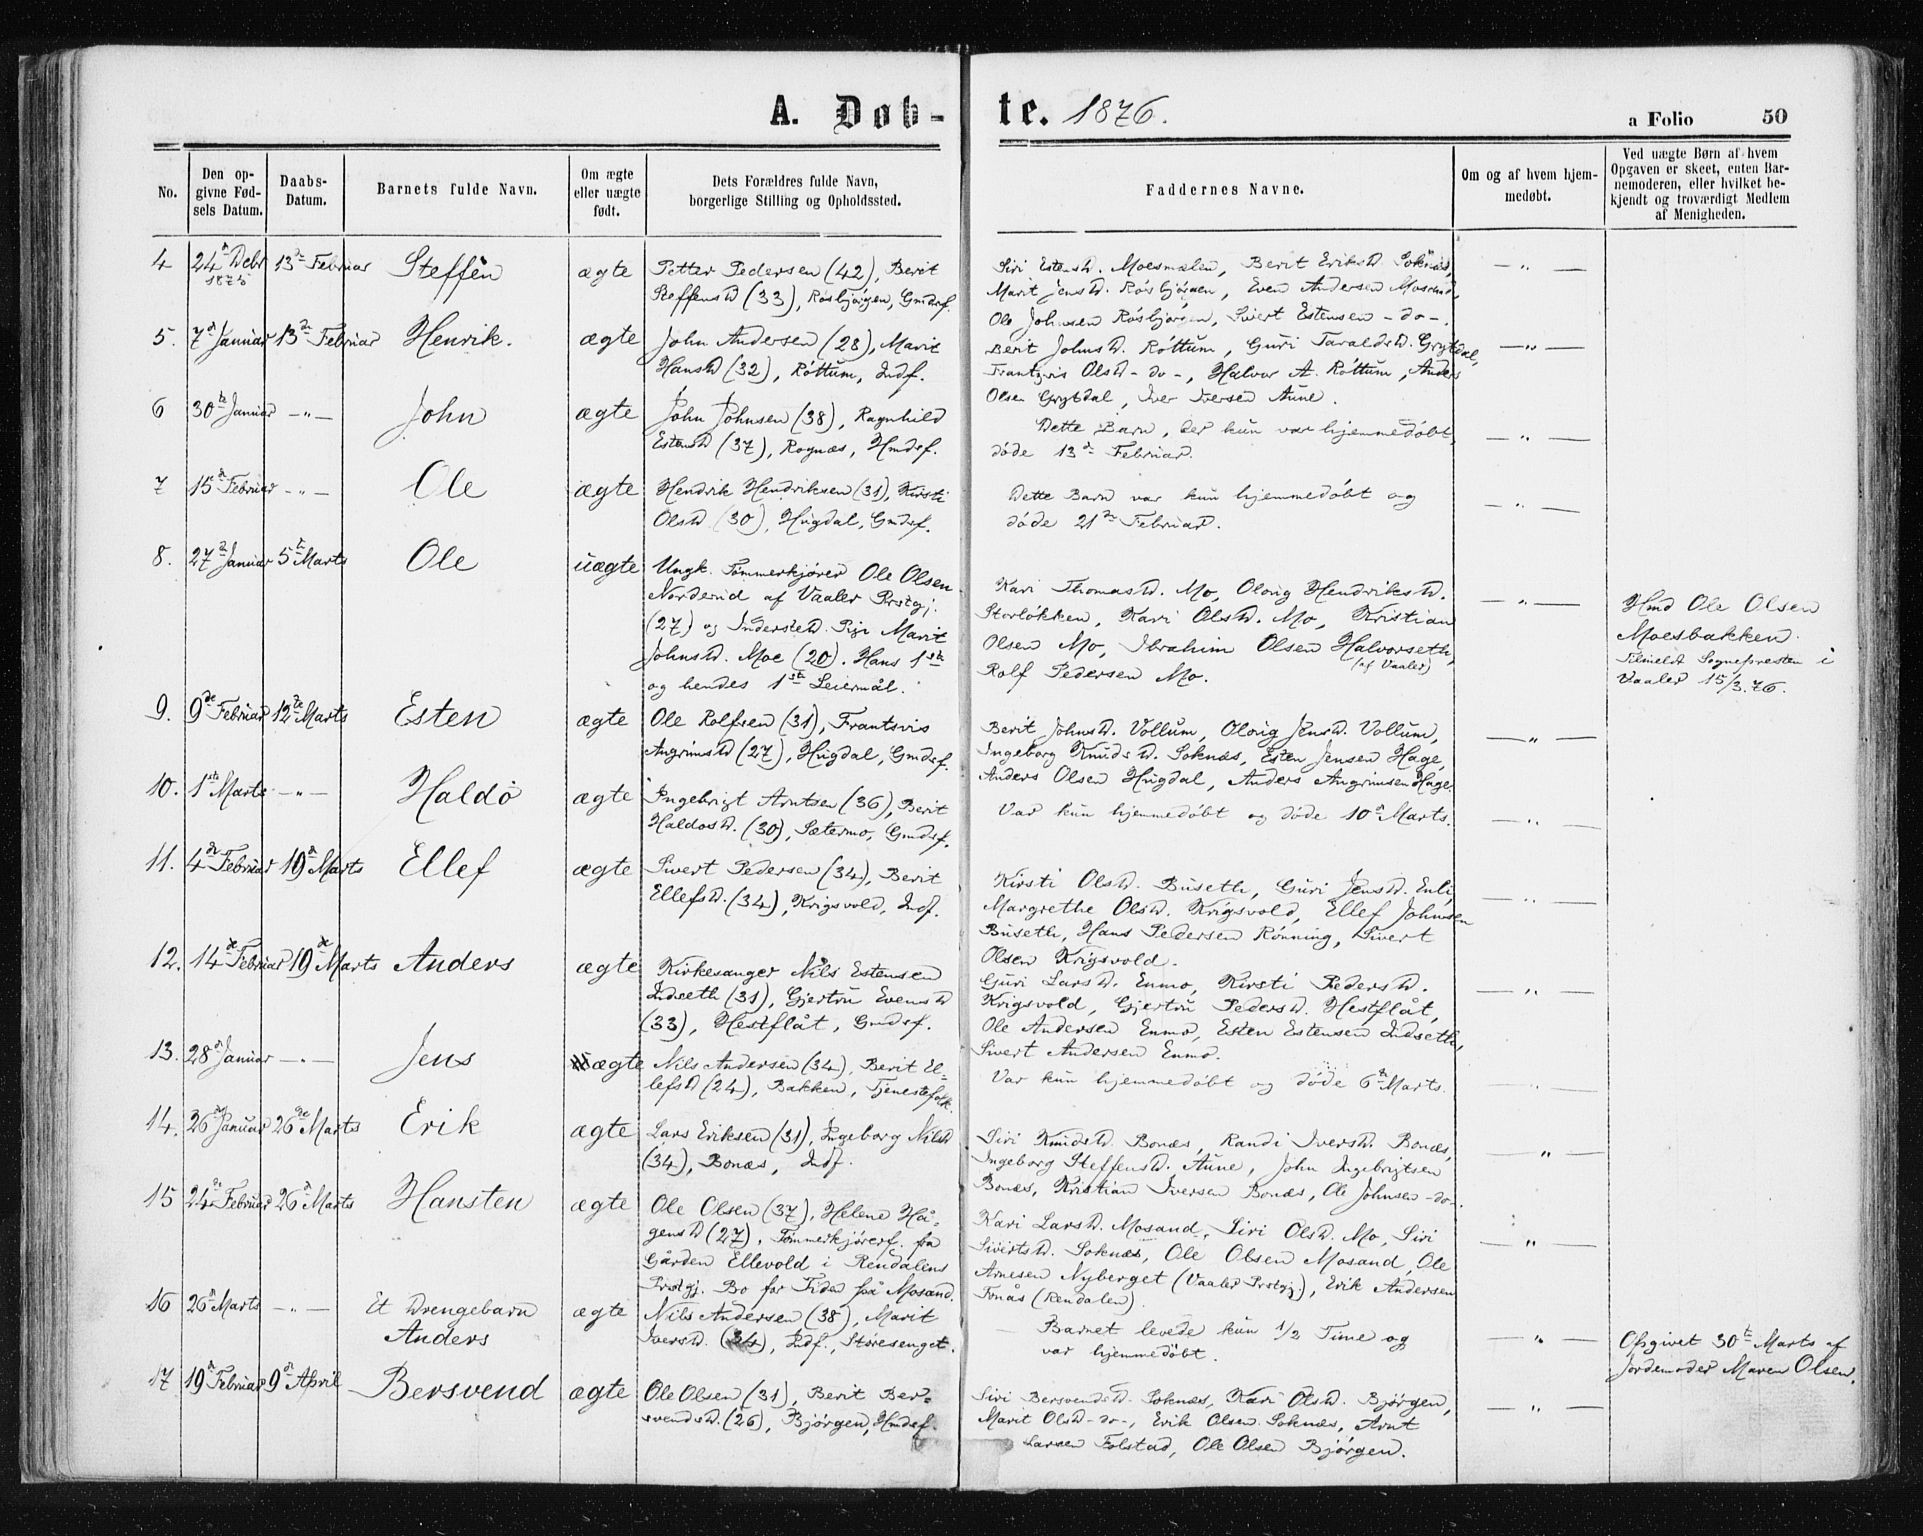 A. Døb-te. 1876.
a Folio 50
No.
Den op-
givne Fød-
sels Datum.
Daabs-
Datum.
Barnets fulde Navn.
Om ægte
eller uægte
født.
Dets Forældres fulde Navn,
borgerlige Stilling og Opholdssted.
Faddernes Navne.
Om og af hvem hjem-
medøbt.
Ved uægte Børn af hvem
Opgaven er skeet, enten Bar-
nemoderen, eller hvilket be-
kjendt og troværdigt Medlem
af Menigheden.
4 24d Debr 1875 13de Februar Steffen ægte
Petter Pedersen (42), Berit
Steffensd (33), Røsbjørgen, Gmdsf.
Siri Estensd. Moesmælen, Berit Eriksd. Soknæs,
Marit Jensd. Røsbjørgen, Even Andersen
Ole Johnsen Røsbjørgen, Sivert Estensen -do-.
— „ —
5. 7d Januar 13de Februar Henrik. ægte
John Andersen (28), Marit
Hansd (32), Røttum, Indf.
Berit Johnsd. Røttum, Guri Taraldsd. Grytdal,
Frantzvis Olsd -do-, Halvor A. Røttum, Anders
Olsen Grytdal, Iver Iversen Aune.
— „ —
6 30te Januar — „ — John ægte
John Johnsen (38), Ragnhild
Estensd (37), Rognæs, Hmdsf.
Dette Barn, der kun var hjemmedøbt,
døde 13de Februar.
— „ —
7 15d Februar — „ — Ole ægte
Hendrik Hendriksen (31), Kirsti
Olsd (30), Hugdal, Gmdsf.
Dette Barn var kun hjemmedøbt og
døde 21de Februar.
— „ —
8. 27d Januar 5te Marts Ole uægte
Ungk. Tømmerkjører Ole Olsen
Norderud af Vaaler Prstgj.
(27) og Indersted. Pige Marit
Johnsd. Moe (20). Hans 1ste
og hendes 1ste Leiermål.
Kari Thomasd. Mo, Olovig Hendriksd.
Storløkken, Kari Olsd. Mo, Kristian
Olsen Mo, Ibrahim Olsen Halvorseth,
(af Vaaler)
Rolf Pedersen Mo.
— „ —
Hmd Ole Olsen
Moesbakken.
Tilmeldt Sognepresten i
Vaaler 15/3.76.
9. 9de Februar 12te Marts Esten ægte
Ole Rolfsen (31), Frantsvis
Angrimsd (27), Hugdal, Gmdsf.
Berit Johnsd. Vollum, Olovig Jensd. Vollum,
Ingeborg Knudsd. Soknæs, Esten Jensen Hage,
Anders Olsen Hugdal, Anders Angrimsen Hage.
— „ —
10. 1ste Marts — „ — Haldo ægte
Ingebrigt Arntsen (36), Berit
Haldosd. (30), Sætermo, Gmdsf.
Var kun hjemmedøbt og døde 10d Marts.
— „ —
11. 4de Februar 19d Marts Ellef ægte
Sivert Pedersen (34), Berit
Ellefsd. (34), Krigsvold, Indf.
Kirsti Olsd. Buseth, Guri Jensd. Enli,
Margrethe Olsd. Krigsvold, Ellef Johnsen
Buseth, Hans Pedersen Rønning, Sivert
Olsen Krigsvold.
— „ —
12. 14de Februar 19de Marts Anders ægte
Kirkesanger Nils Estensen
Indseth (31), Gjertru Evensd
(33), Hestflåt, Gmdsf.
Guri Larsd. Enmo, Kirsti Pedersd.
Krigsvold, Gjertru Pedersd. Hestflåt,
Ole Andersen Enmo, Esten Estensen Indseth,
Sivert Andersen Enmo.
— „ —
13. 28d Januar — „ — Jens uægte
Nils Andersen (34), Berit El-
lefsd (24), Bakken, Tjenestefolk.
Var kun hjemmedøbt og døde 6te Marts.
— „ —
14. 26d Januar 26de Marts Erik ægte
Lars Eriksen (31), Ingeborg Nilsd
(34), Bonæs, Indf.
Siri Knudsd. Bonæs, Randi Iversd. Bonæs,
Ingeborg Steffensd. Aune, John Ingebrigtsen
Bonæs, Kristian Iversen Bonæs, Ole Johnsen -do-.
— „ —
15 24de Februar 26d Marts Hansten ægte
Ole Olsen (37), Helene Hå-
gensd (27), Tømmerkjørerf. fra
Gården Ellevold i Rendalens
Prstgj. Bo for Tiden på Mosand.
Kari Larsd. Mosand, Siri Olsd. Mo, Siri
Sivertsd. Soknæs, Ole Olsen Mosand, Ole
Arnesen Nyberget (Vaaler Prstgj.), Erik Andersen
Fonås (Rendalen)
— „ —
16 26d Marts — „ — Et Drengebarn
Anders
ægte
Nils Andersen (38), Marit
Iversd. (34), Indf., Støresenget.
Barnet levede kun 1/2 Time og
var hjemmedøbt.
— „ —
Opgivet 30te Marts af
Jordemoder Maren Olsen.
17 19d Februar 9de April Bersvend ægte
Ole Olsen (31), Berit Ber-
svendsd. (26), Bjørgen, Hmdsf.
Siri Bersvendsd. Soknæs, Kari Olsd. Bjørgen,
Marit Olsd -do-, Erik Olsen Soknæs, Arnt
Larsen Folstad, Ole Olsen Bjørgen.
— „ —